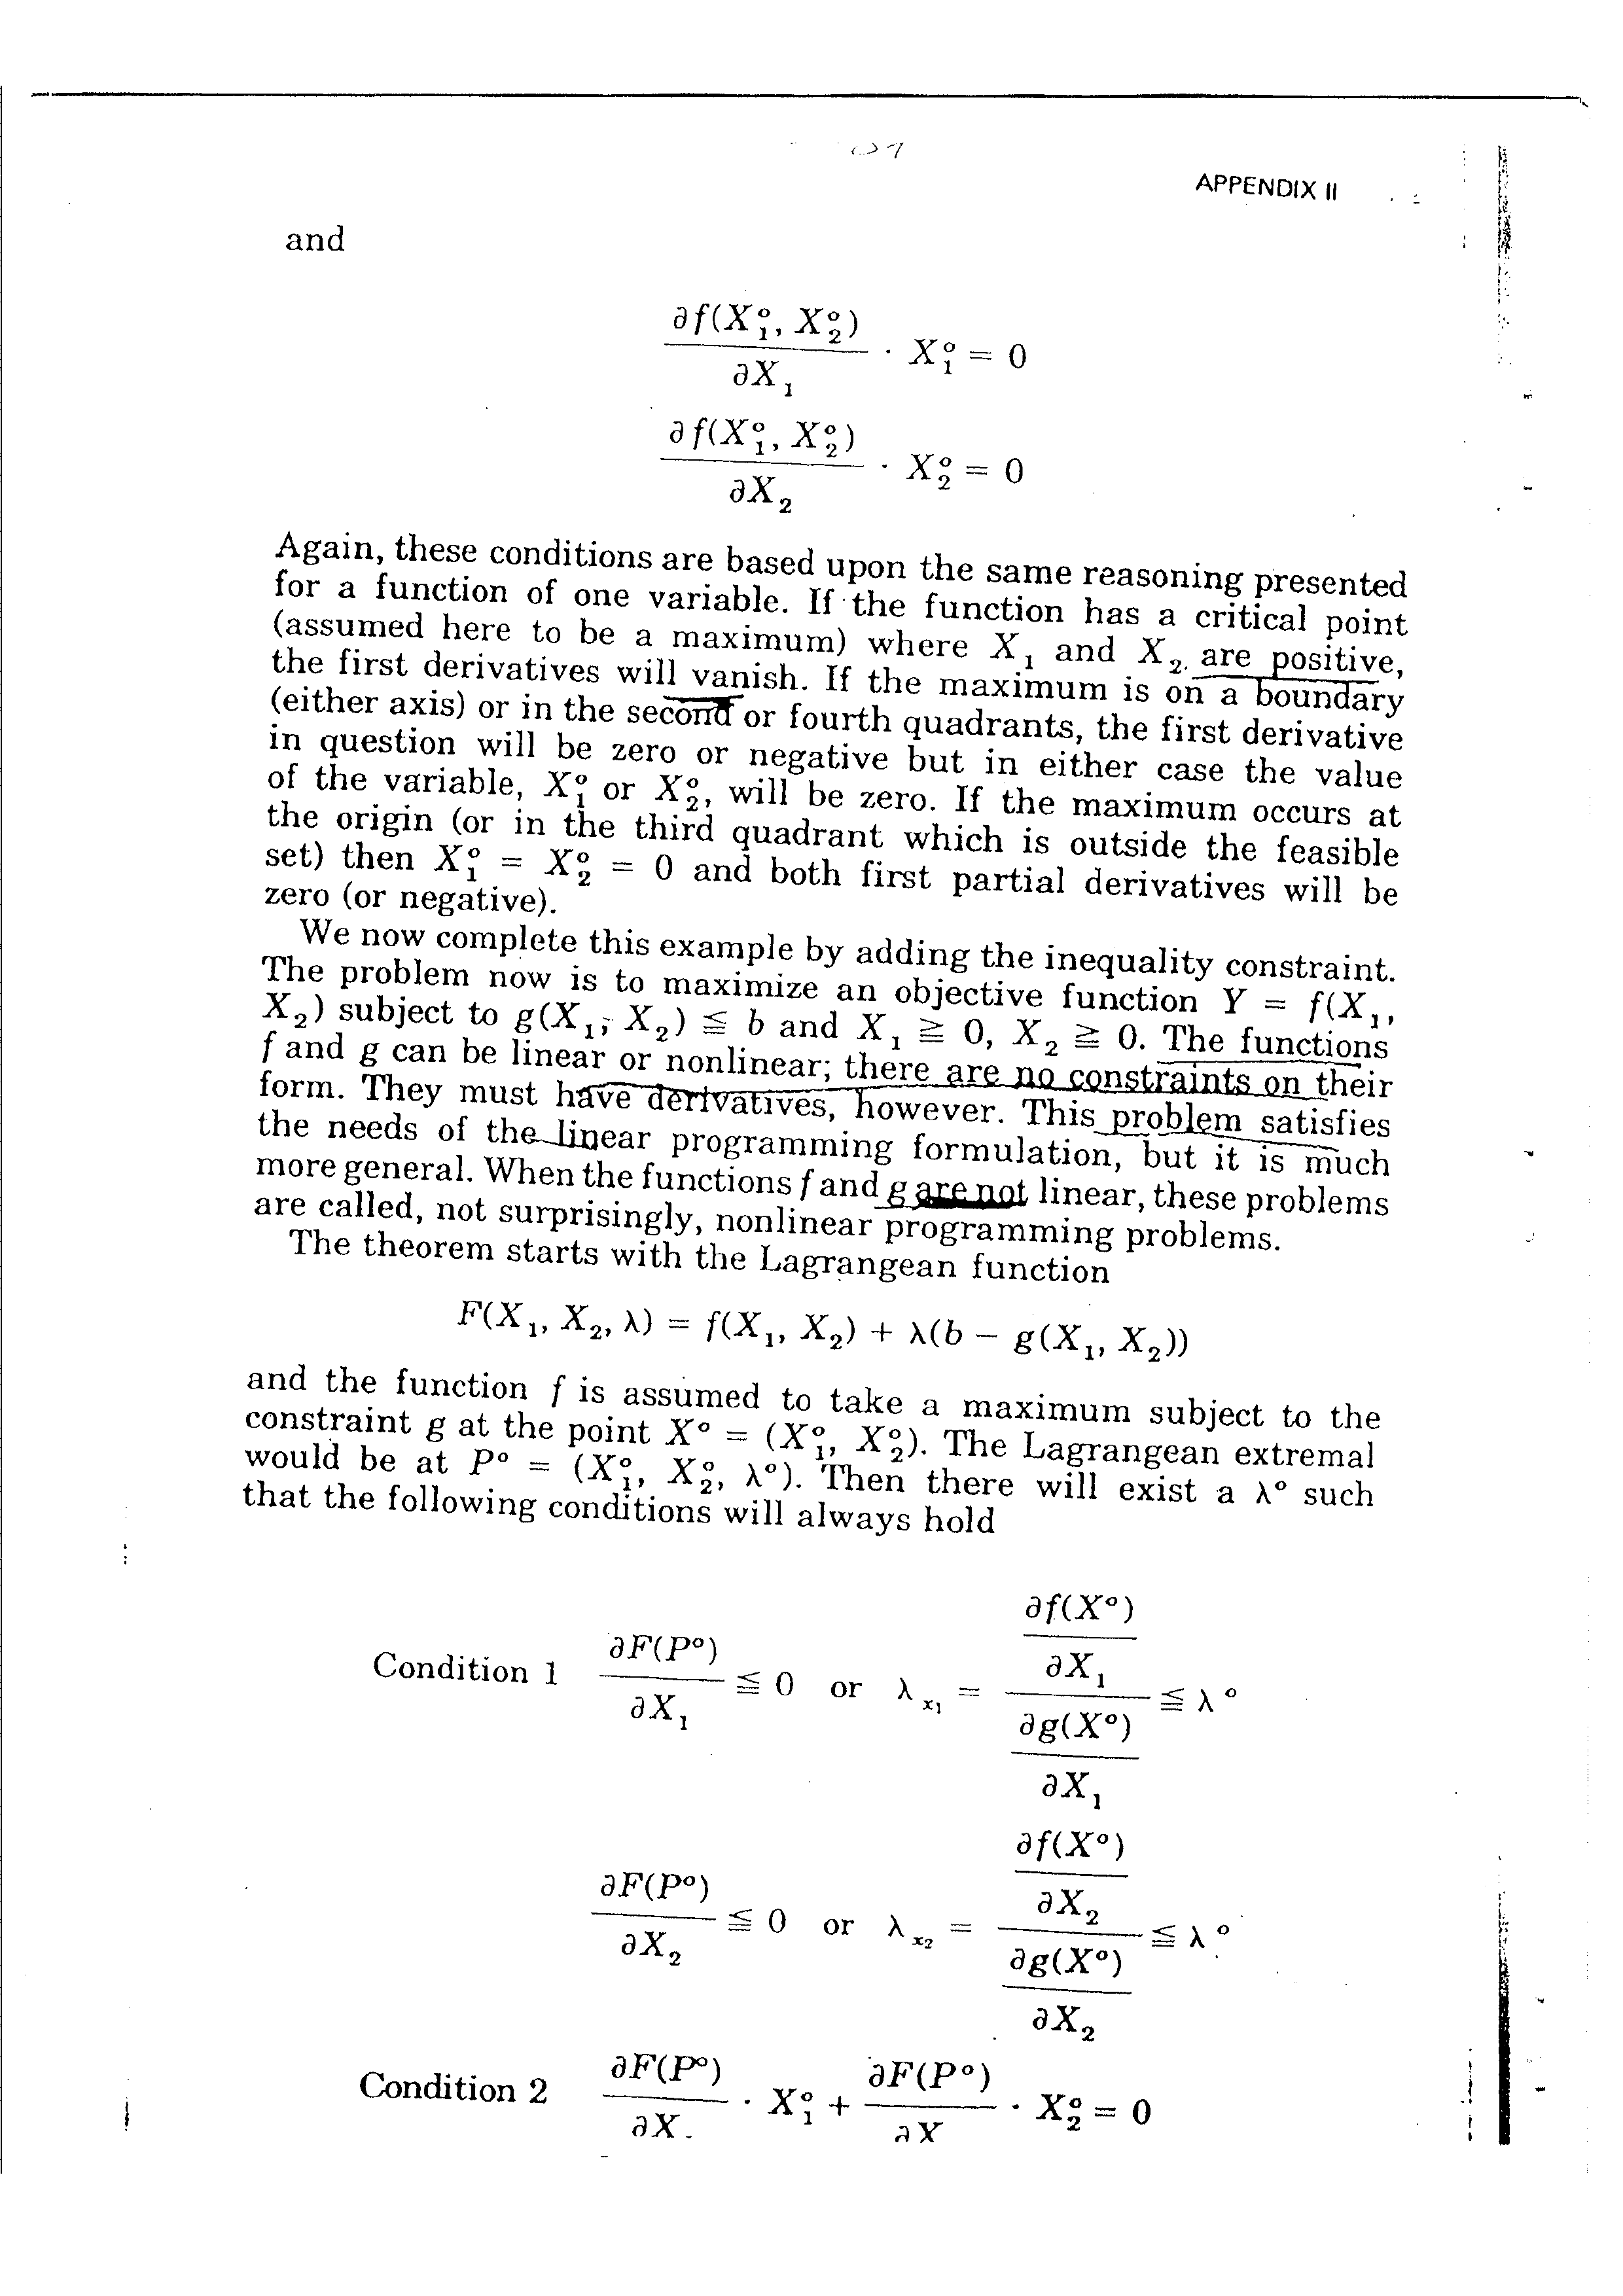 APPENDIX II
and
∂f(X₁°, X₂°)
───────── · X₁° = 0
∂X₁
∂f(X₁°, X₂°)
───────── · X₂° = 0
∂X₂
Again, these conditions are based upon the same reasoning presented
for a function of one variable. If the function has a critical point
(assumed here to be a maximum) where X₁ and X₂ are positive,
the first derivatives will vanish. If the maximum is on a boundary
(either axis) or in the second or fourth quadrants, the first derivative
in question will be zero or negative but in either case the value
of the variable, X₁° or X₂°, will be zero. If the maximum occurs at
the origin (or in the third quadrant which is outside the feasible
set) then X₁° = X₂° = 0 and both first partial derivatives will be
zero (or negative).
We now complete this example by adding the inequality constraint.
The problem now is to maximize an objective function Y = f(X₁,
X₂) subject to g(X₁, X₂) ≦ b and X₁ ≧ 0, X₂ ≧ 0. The functions
f and g can be linear or nonlinear; there are no constraints on their
form. They must have derivatives, however. This problem satisfies
the needs of the linear programming formulation, but it is much
more general. When the functions f and g are not linear, these problems
are called, not surprisingly, nonlinear programming problems.
The theorem starts with the Lagrangean function
F(X₁, X₂, λ) = f(X₁, X₂) + λ(b − g(X₁, X₂))
and the function f is assumed to take a maximum subject to the
constraint g at the point X° = (X₁°, X₂°). The Lagrangean extremal
would be at P° = (X₁°, X₂°, λ°). Then there will exist a λ° such
that the following conditions will always hold
∂f(X°)
∂F(P°) ───── ∂X₁
Condition 1 ───── ≦ 0 or λx₁ = ───── ≦ λ°
∂X₁ ∂g(X°)
─────
∂X₁
∂f(X°)
∂F(P°) ───── ∂X₂
───── ≦ 0 or λx₂ = ───── ≦ λ°
∂X₂ ∂g(X°)
─────
∂X₂
∂F(P°) ∂F(P°)
Condition 2 ───── · X₁° + ───── · X₂° = 0
∂X ∂X